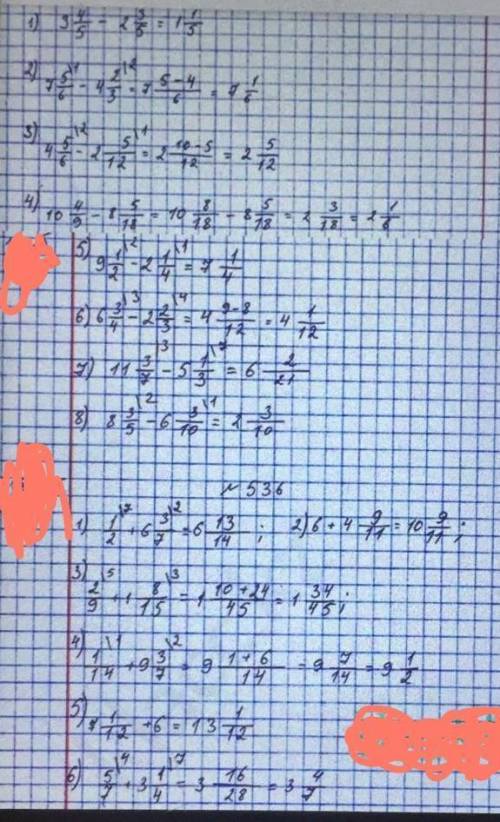 1) 3 4/5 - 2 3/5 = 1 1/5
2) 7 5/6 \1 - 4 2/3 \2 = 7 5-4/6 = 7 1/6
3) 4 5/6 \2 - 2 5/12 \1 = 2 10-5/12 = 2 5/12
4) 10 4/9 - 8 5/18 = 10 8/18 - 8 5/18 = 2 3/18 = 2 1/6
5) 9 1/2 \2 - 2 1/4 \1 = 7 1/4
6) 6 3/4 \3 - 2 2/3 \4 = 4 9-8/12 = 4 1/12
7) 11 3/7 \3 - 5 1/3 \7 = 6 2/21
8) 8 3/5 \2 - 6 3/10 \1 = 2 3/10
№ 536
1) 1/2 \7 + 6 3/7 \2 = 6 13/14 ; 2) 6 + 4 9/11 = 10 9/11 ;
3) 2/9 \5 + 1 8/15 \3 = 1 10+24/45 = 1 34/45 ;
4) 1/14 \1 + 9 3/7 \2 = 9 1+6/14 = 9 7/14 = 9 1/2
5) 7 1/12 + 6 = 13 1/12
6) 5/7 \4 + 3 1/4 \7 = 3 16/28 = 3 4/7